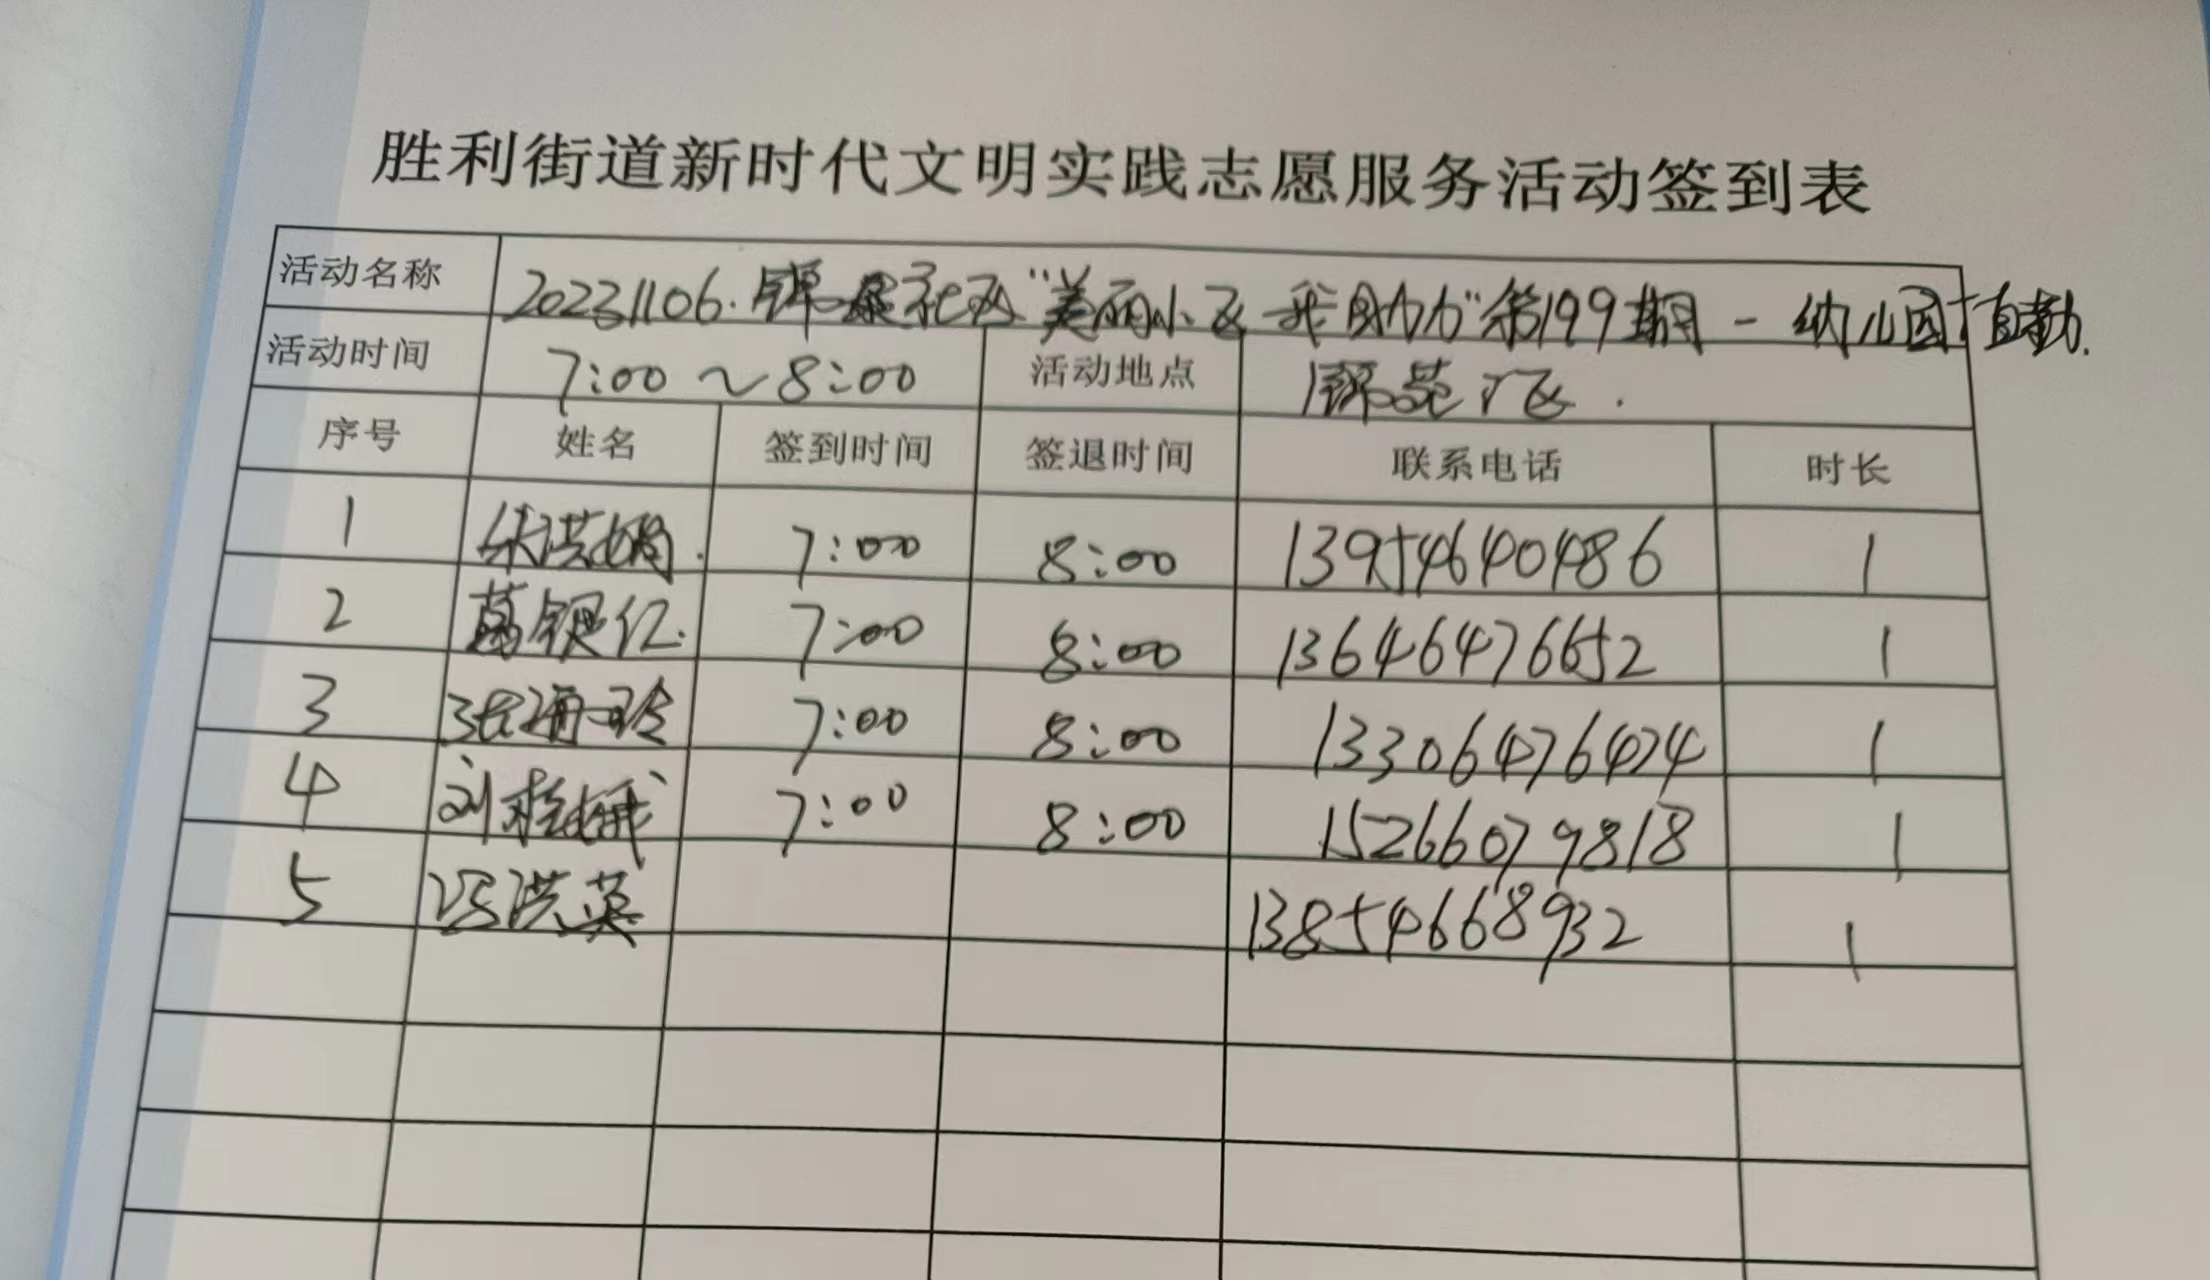 胜利街道新时代文明实践志愿服务活动签到表
活动名称 20231106.锦康社区"美丽小区 我助力"第199期-幼儿园值勤.
活动时间 7:00~8:00 活动地点 锦苑广区.
序号 姓名 签到时间 签退时间 联系电话 时长
1 朱洪娟. 7:00 8:00 13954640486 1
2 葛银红. 7:00 8:00 13646476652 1
3 张珊玲 7:00 8:00 13306476474 1
4 刘桂娥 7:00 8:00 15266079818 1
5 冯洪英 13854668932 1